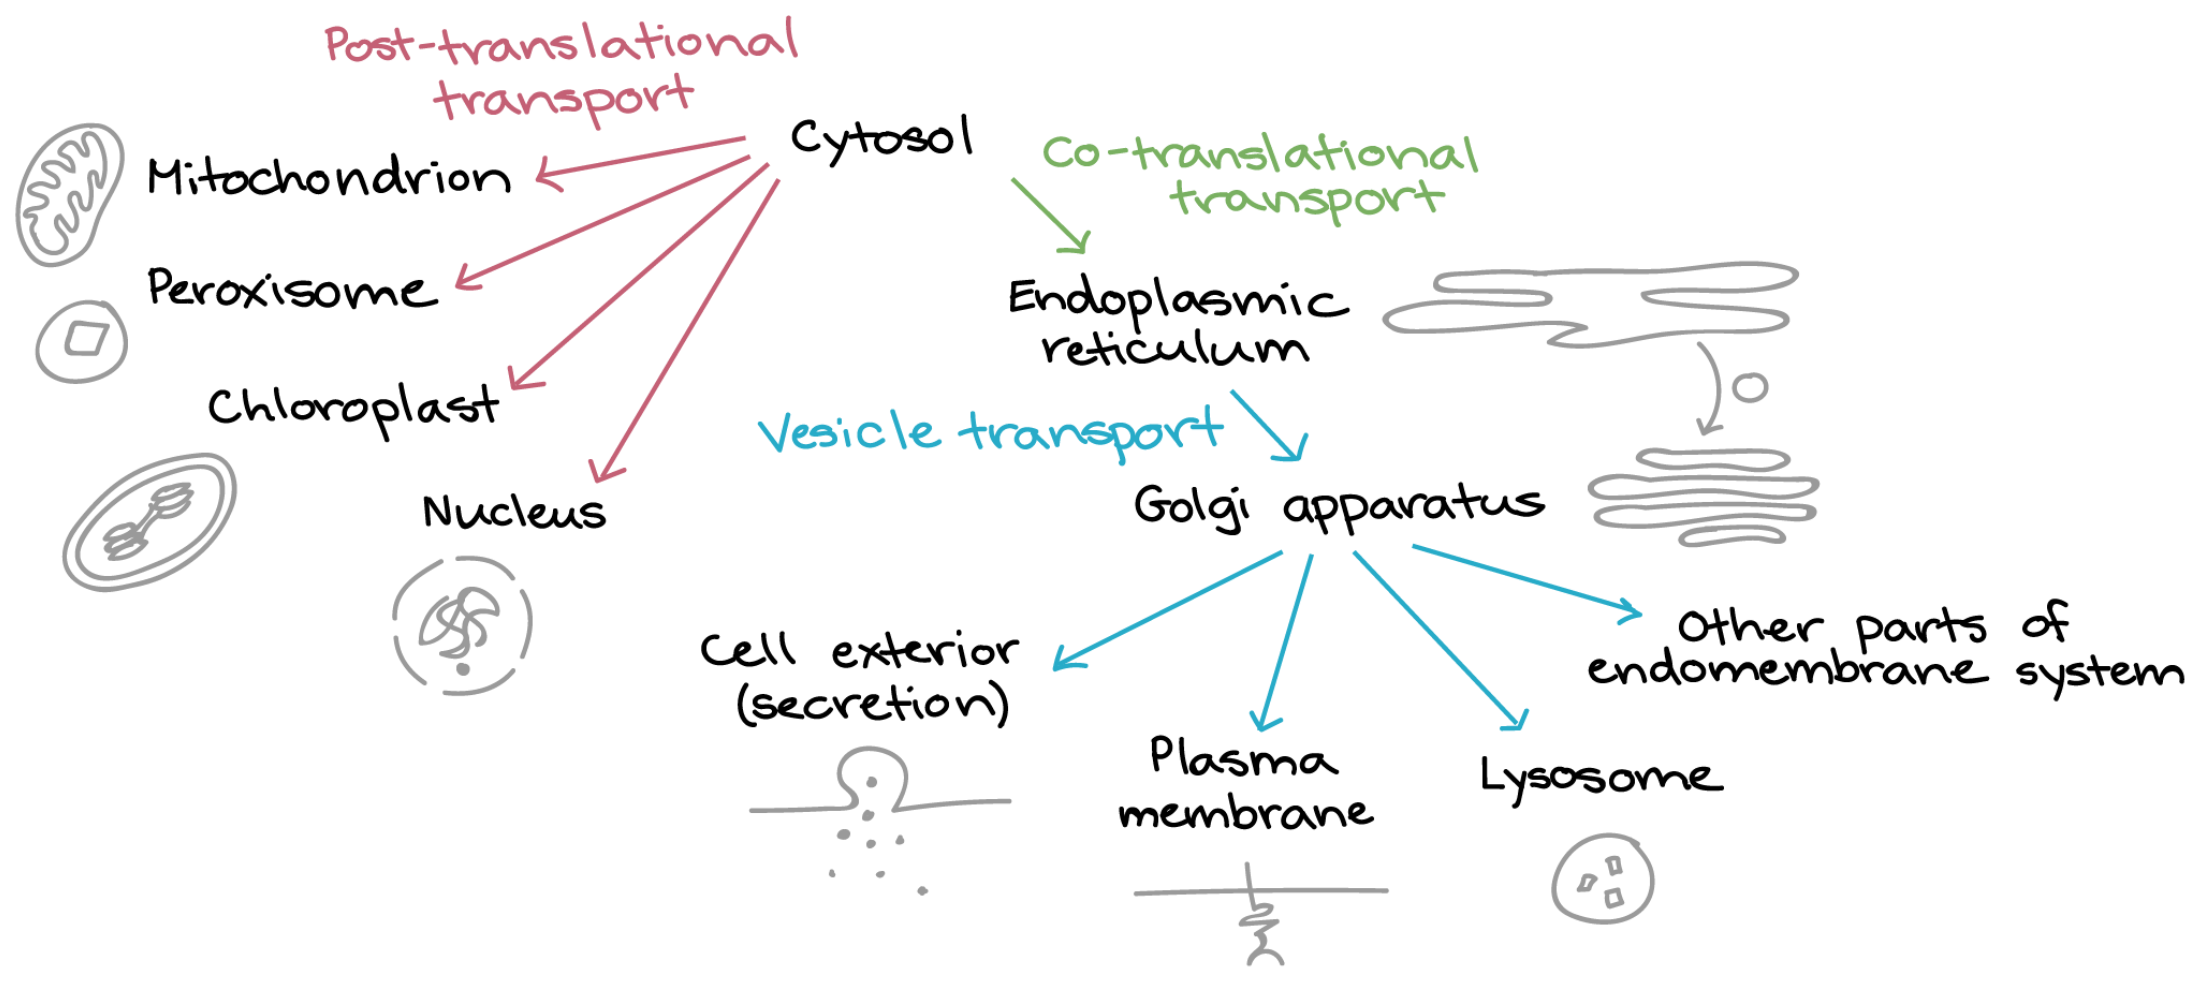 Post-translational
transport
Cytosol
Co-translational
transport
Mitochondrion
Peroxisome
Chloroplast
Nucleus
Endoplasmic
reticulum
Vesicle transport
Golgi apparatus
Cell exterior
(secretion)
Plasma
membrane
Lysosome
Other parts of
endomembrane system